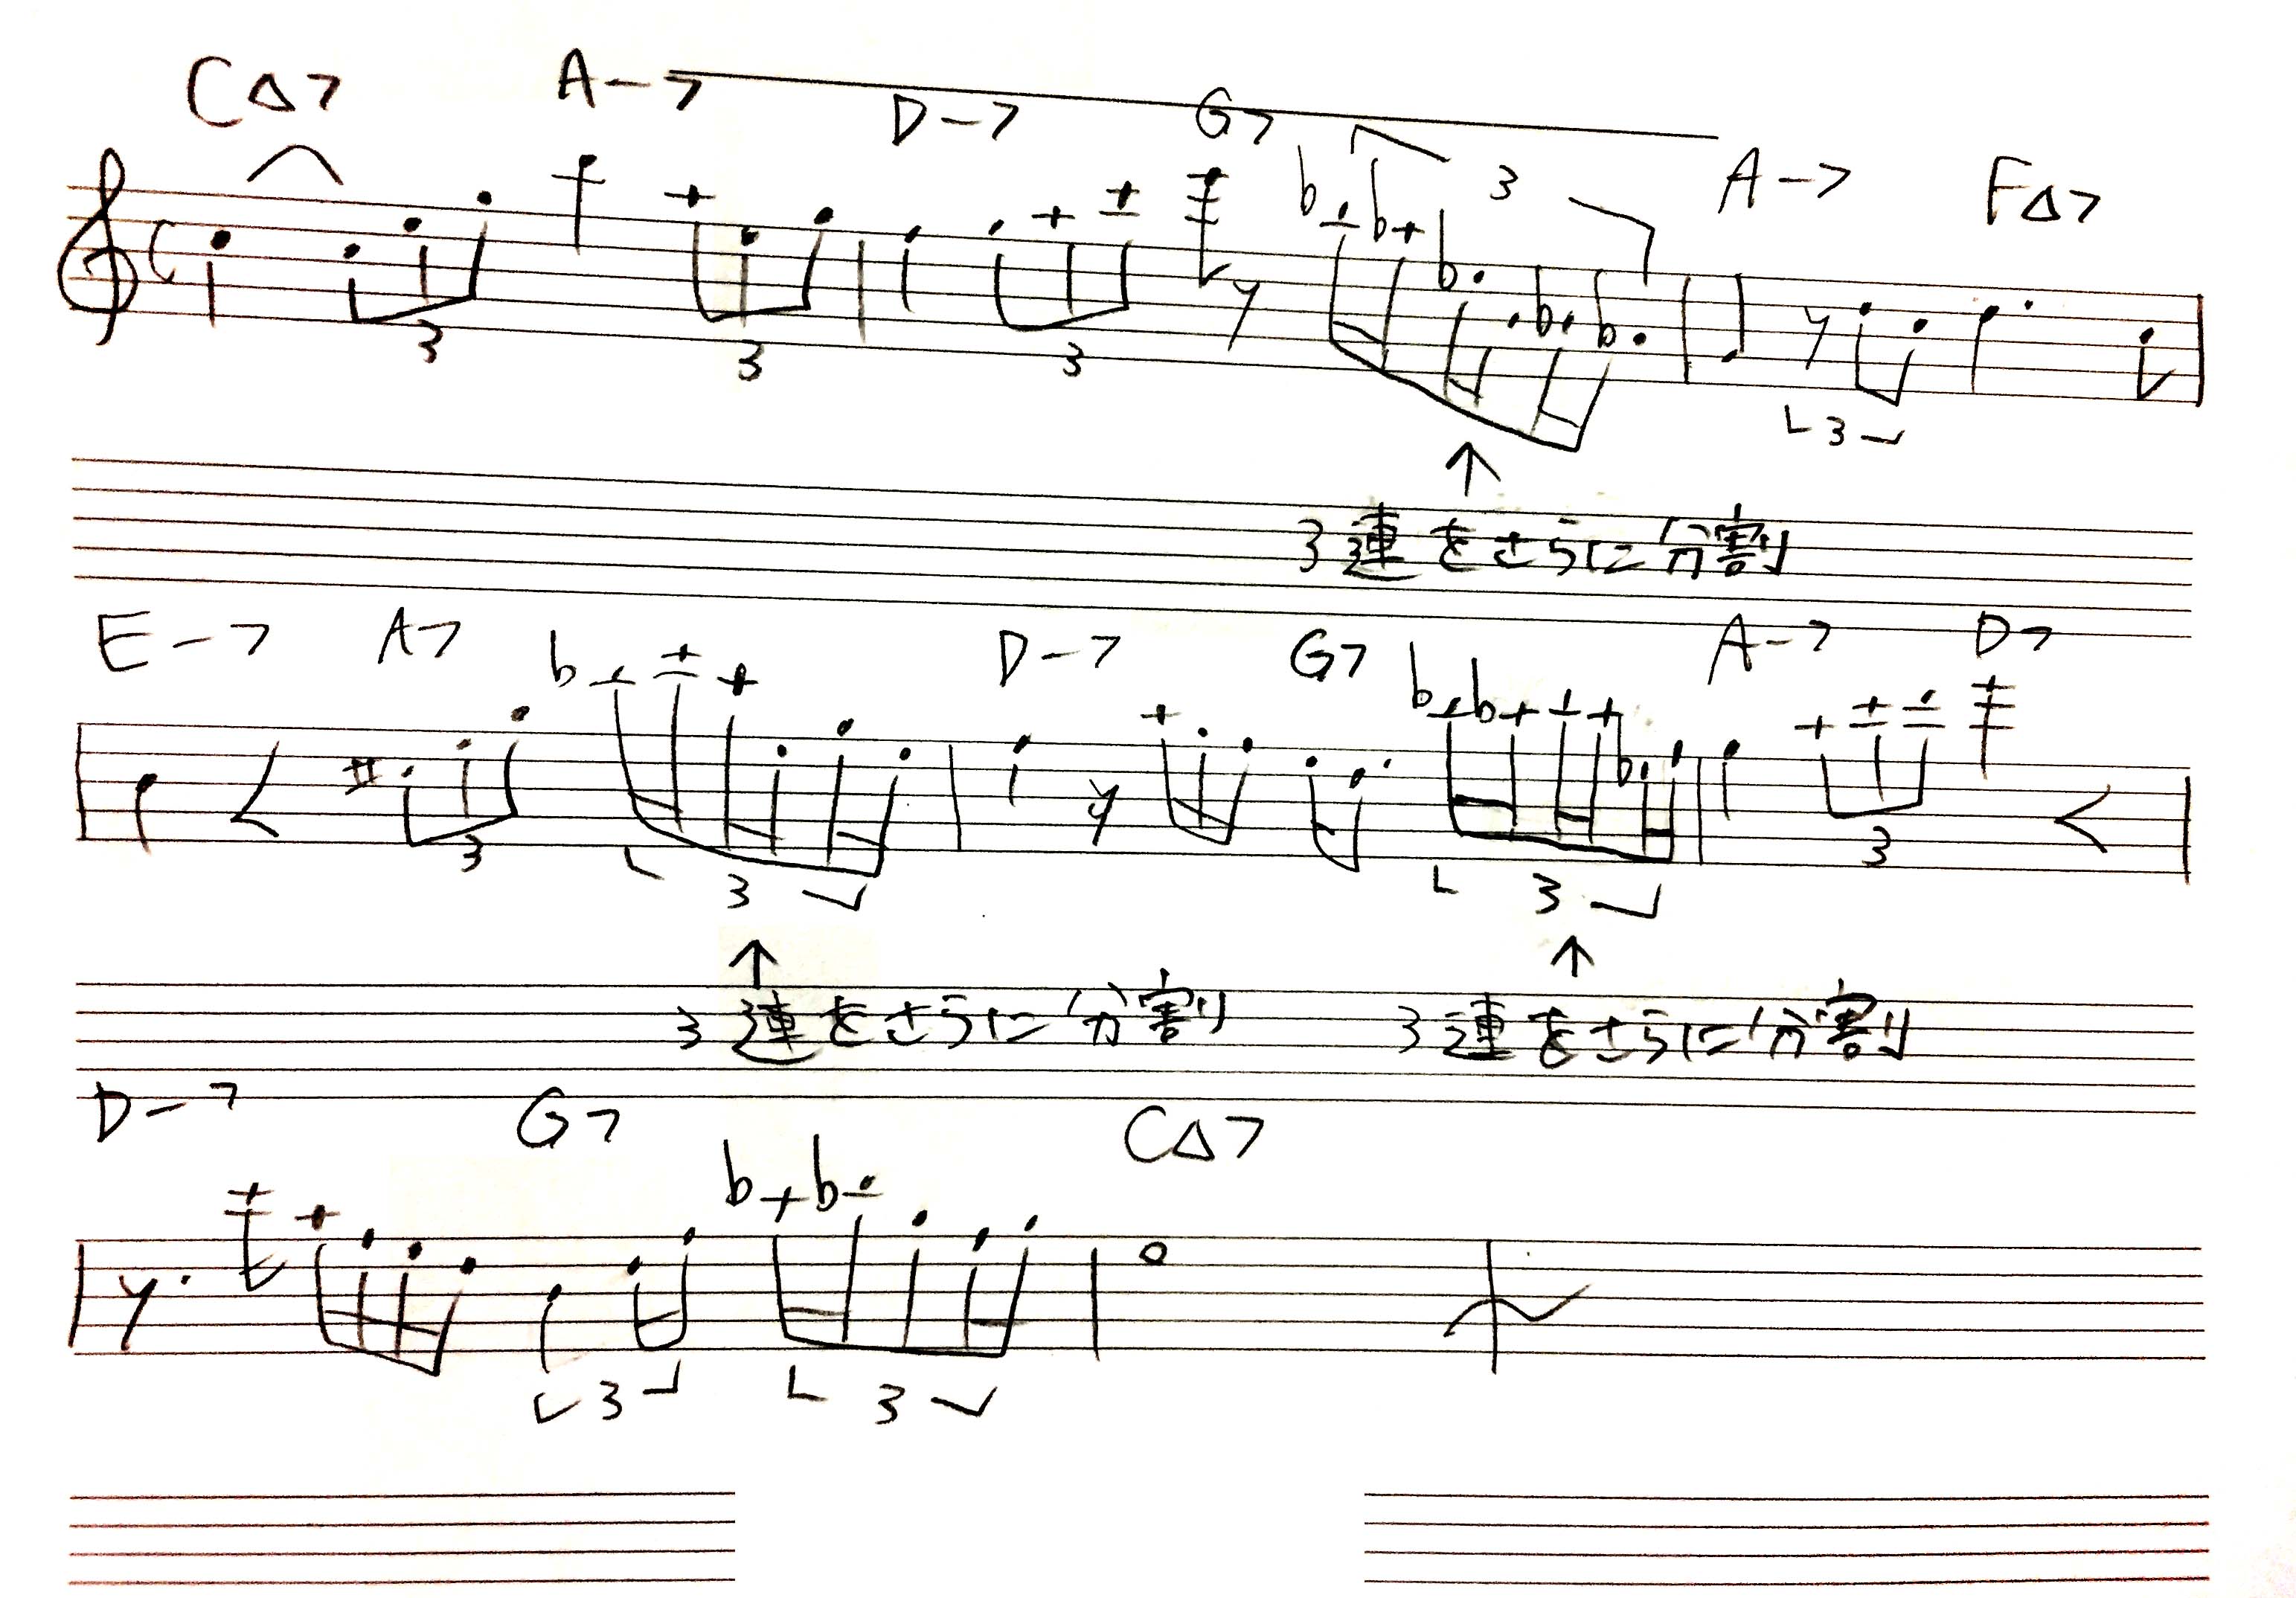 C△7 A-7 D-7 G7 A-7 F△7
3
3 3 3 3
3連をさらに分割
E-7 A7 D-7 G7 A-7 D7
3 3 3 3
3連をさらに分割 3連をさらに分割
D-7 G7 C△7
3 3